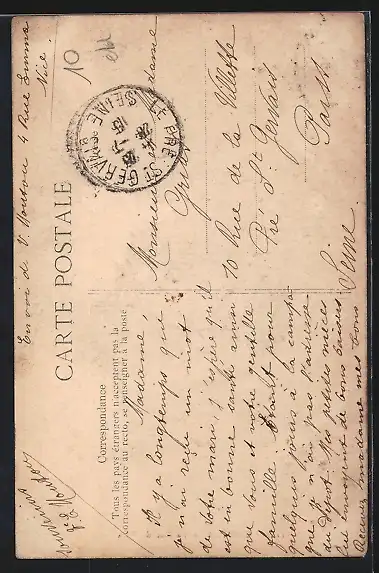 Envoi de V. Moutou 4 Rue Emma
Nice
10
CARTE POSTALE
Correspondance
Tous les pays étrangers n'acceptent pas la
correspondance au recto, se renseigner à la poste
LE PRE-ST-GERVAIS
SEINE
Monsieur et Madame
10 Rue de la Villette
Pré St Gervais
Paris
Seine
Madame,
Il y a longtemps que
je n'ai reçu un mot
de votre mari, j'espère qu'il
est en bonne santé ainsi
que vous et votre gentille
famille étant pour
quelques jours à la campa
gne, je n'ai pas l'adresse
du Dépot. Mes petites nièces
lui envoyent de bons baisers
Recevez madame mes bons
souvenirs